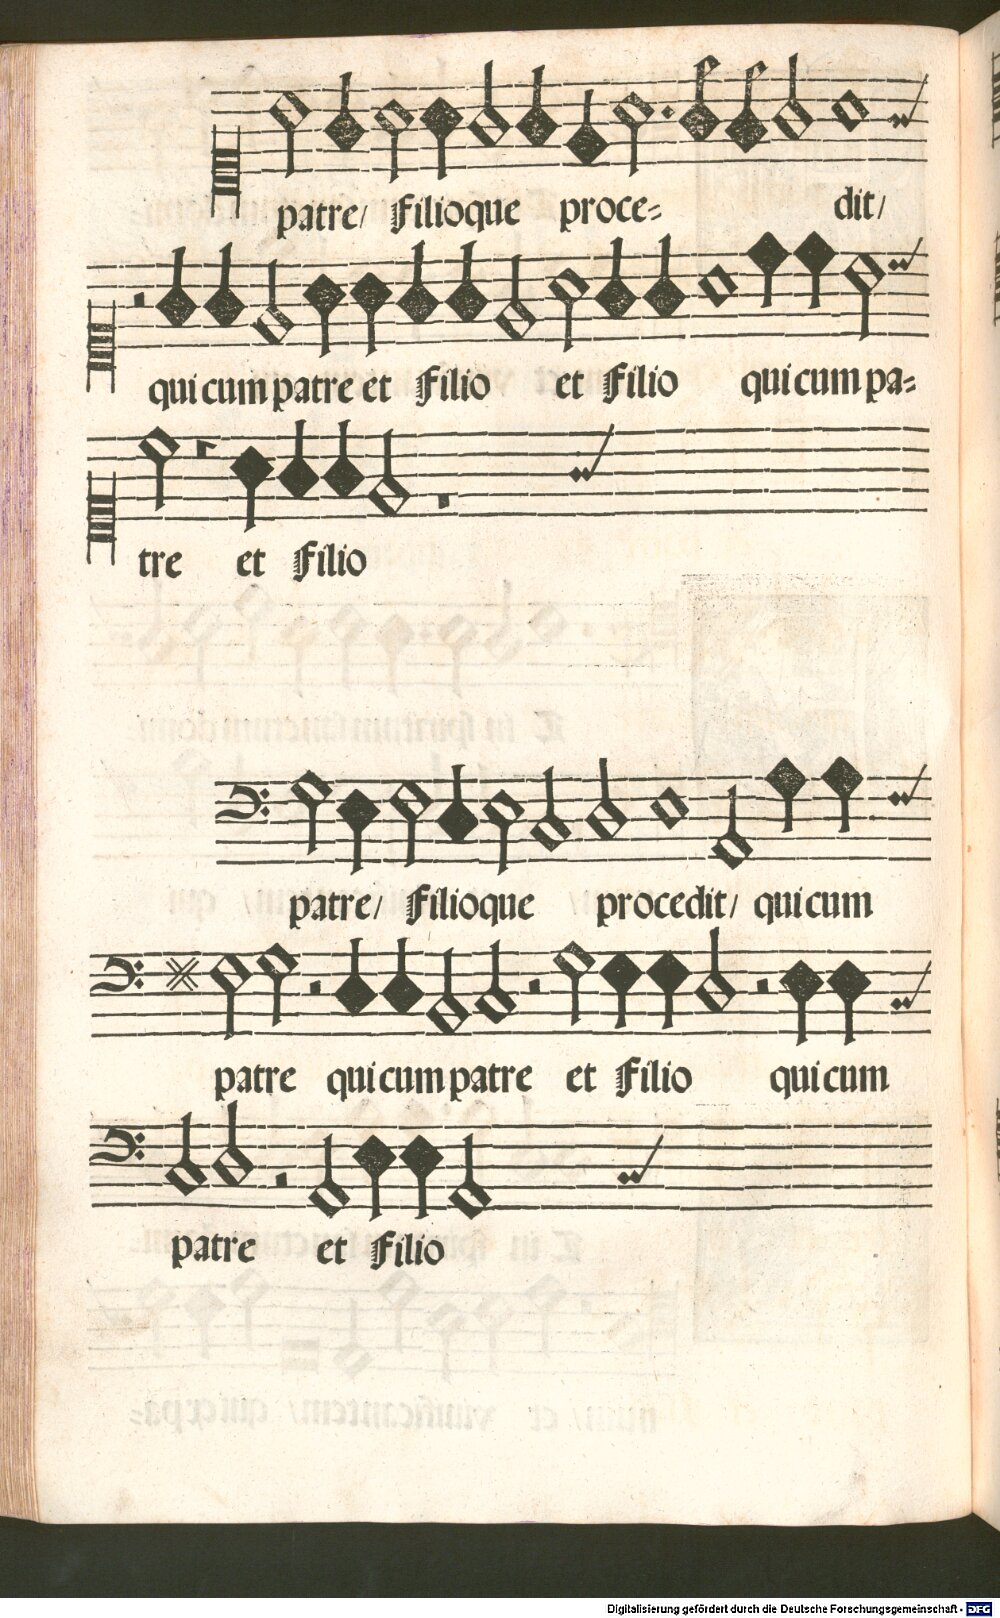 patre/ Filioque proce= dit/
qui cum patre et Filio et Filio qui cum pa=
tre et Filio
patre/ Filioque procedit/ qui cum
patre qui cum patre et Filio qui cum
patre et Filio
Digitalisierung gefördert durch die Deutsche Forschungsgemeinschaft - DFG